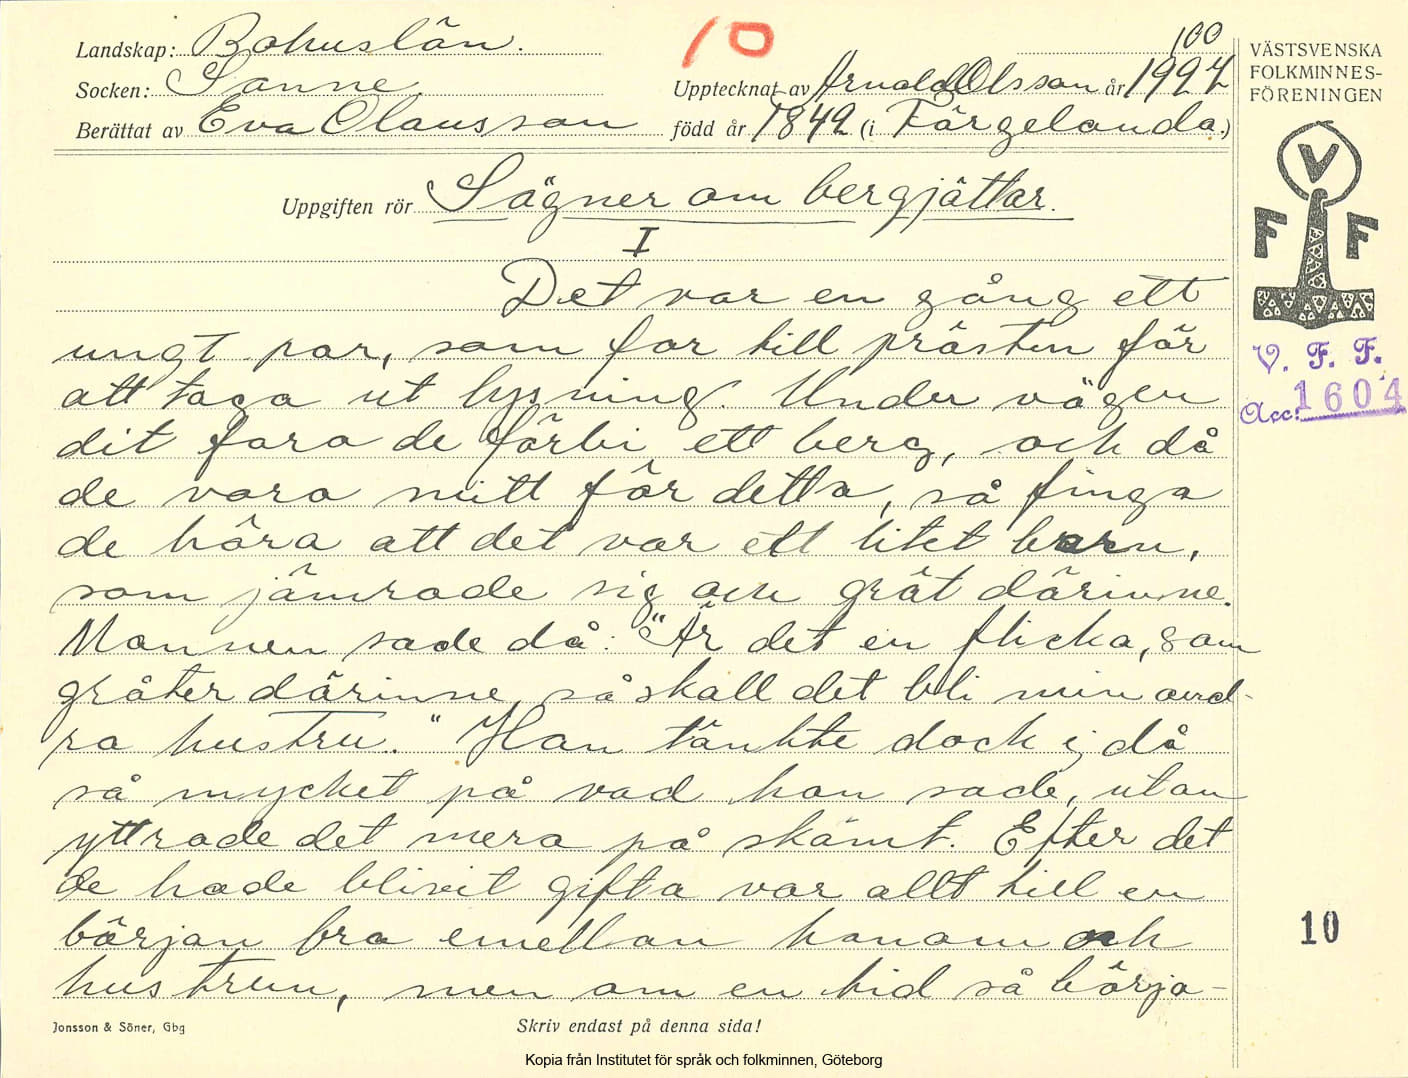 10
100
Landskap: Bohuslän.
Socken: Sanne.
Upptecknat av Arnold Olsson år 1927
Berättat av Eva Olausson född år 1842 (i Färgelanda.)
Uppgiften rör Sägner om bergjättar.
I
Det var en gång ett
ungt par, som for till prästen för
att taga ut lysning. Under vägen
dit foro de förbi ett berg, och då
de voro mitt för detta, så fingo
de höra att det var ett litet barn,
som jämrade sig och grät därinne.
Mannen sade då: "Är det en flicka, som
gråter därinne, så skall det bli min and-
ra hustru." Han tänkte dock ej då
så mycket på vad han sade, utan
yttrade det mera på skämt. Efter det
de hade blivit gifta var allt till en
början bra emellan honom och
hustrun, men om en tid så börja-
Jonsson & Söner, Gbg
Skriv endast på denna sida!
Kopia från Institutet för språk och folkminnen, Göteborg
VÄSTSVENSKA
FOLKMINNES-
FÖRENINGEN
V
F F
V. F. F.
Acc: 1604
10